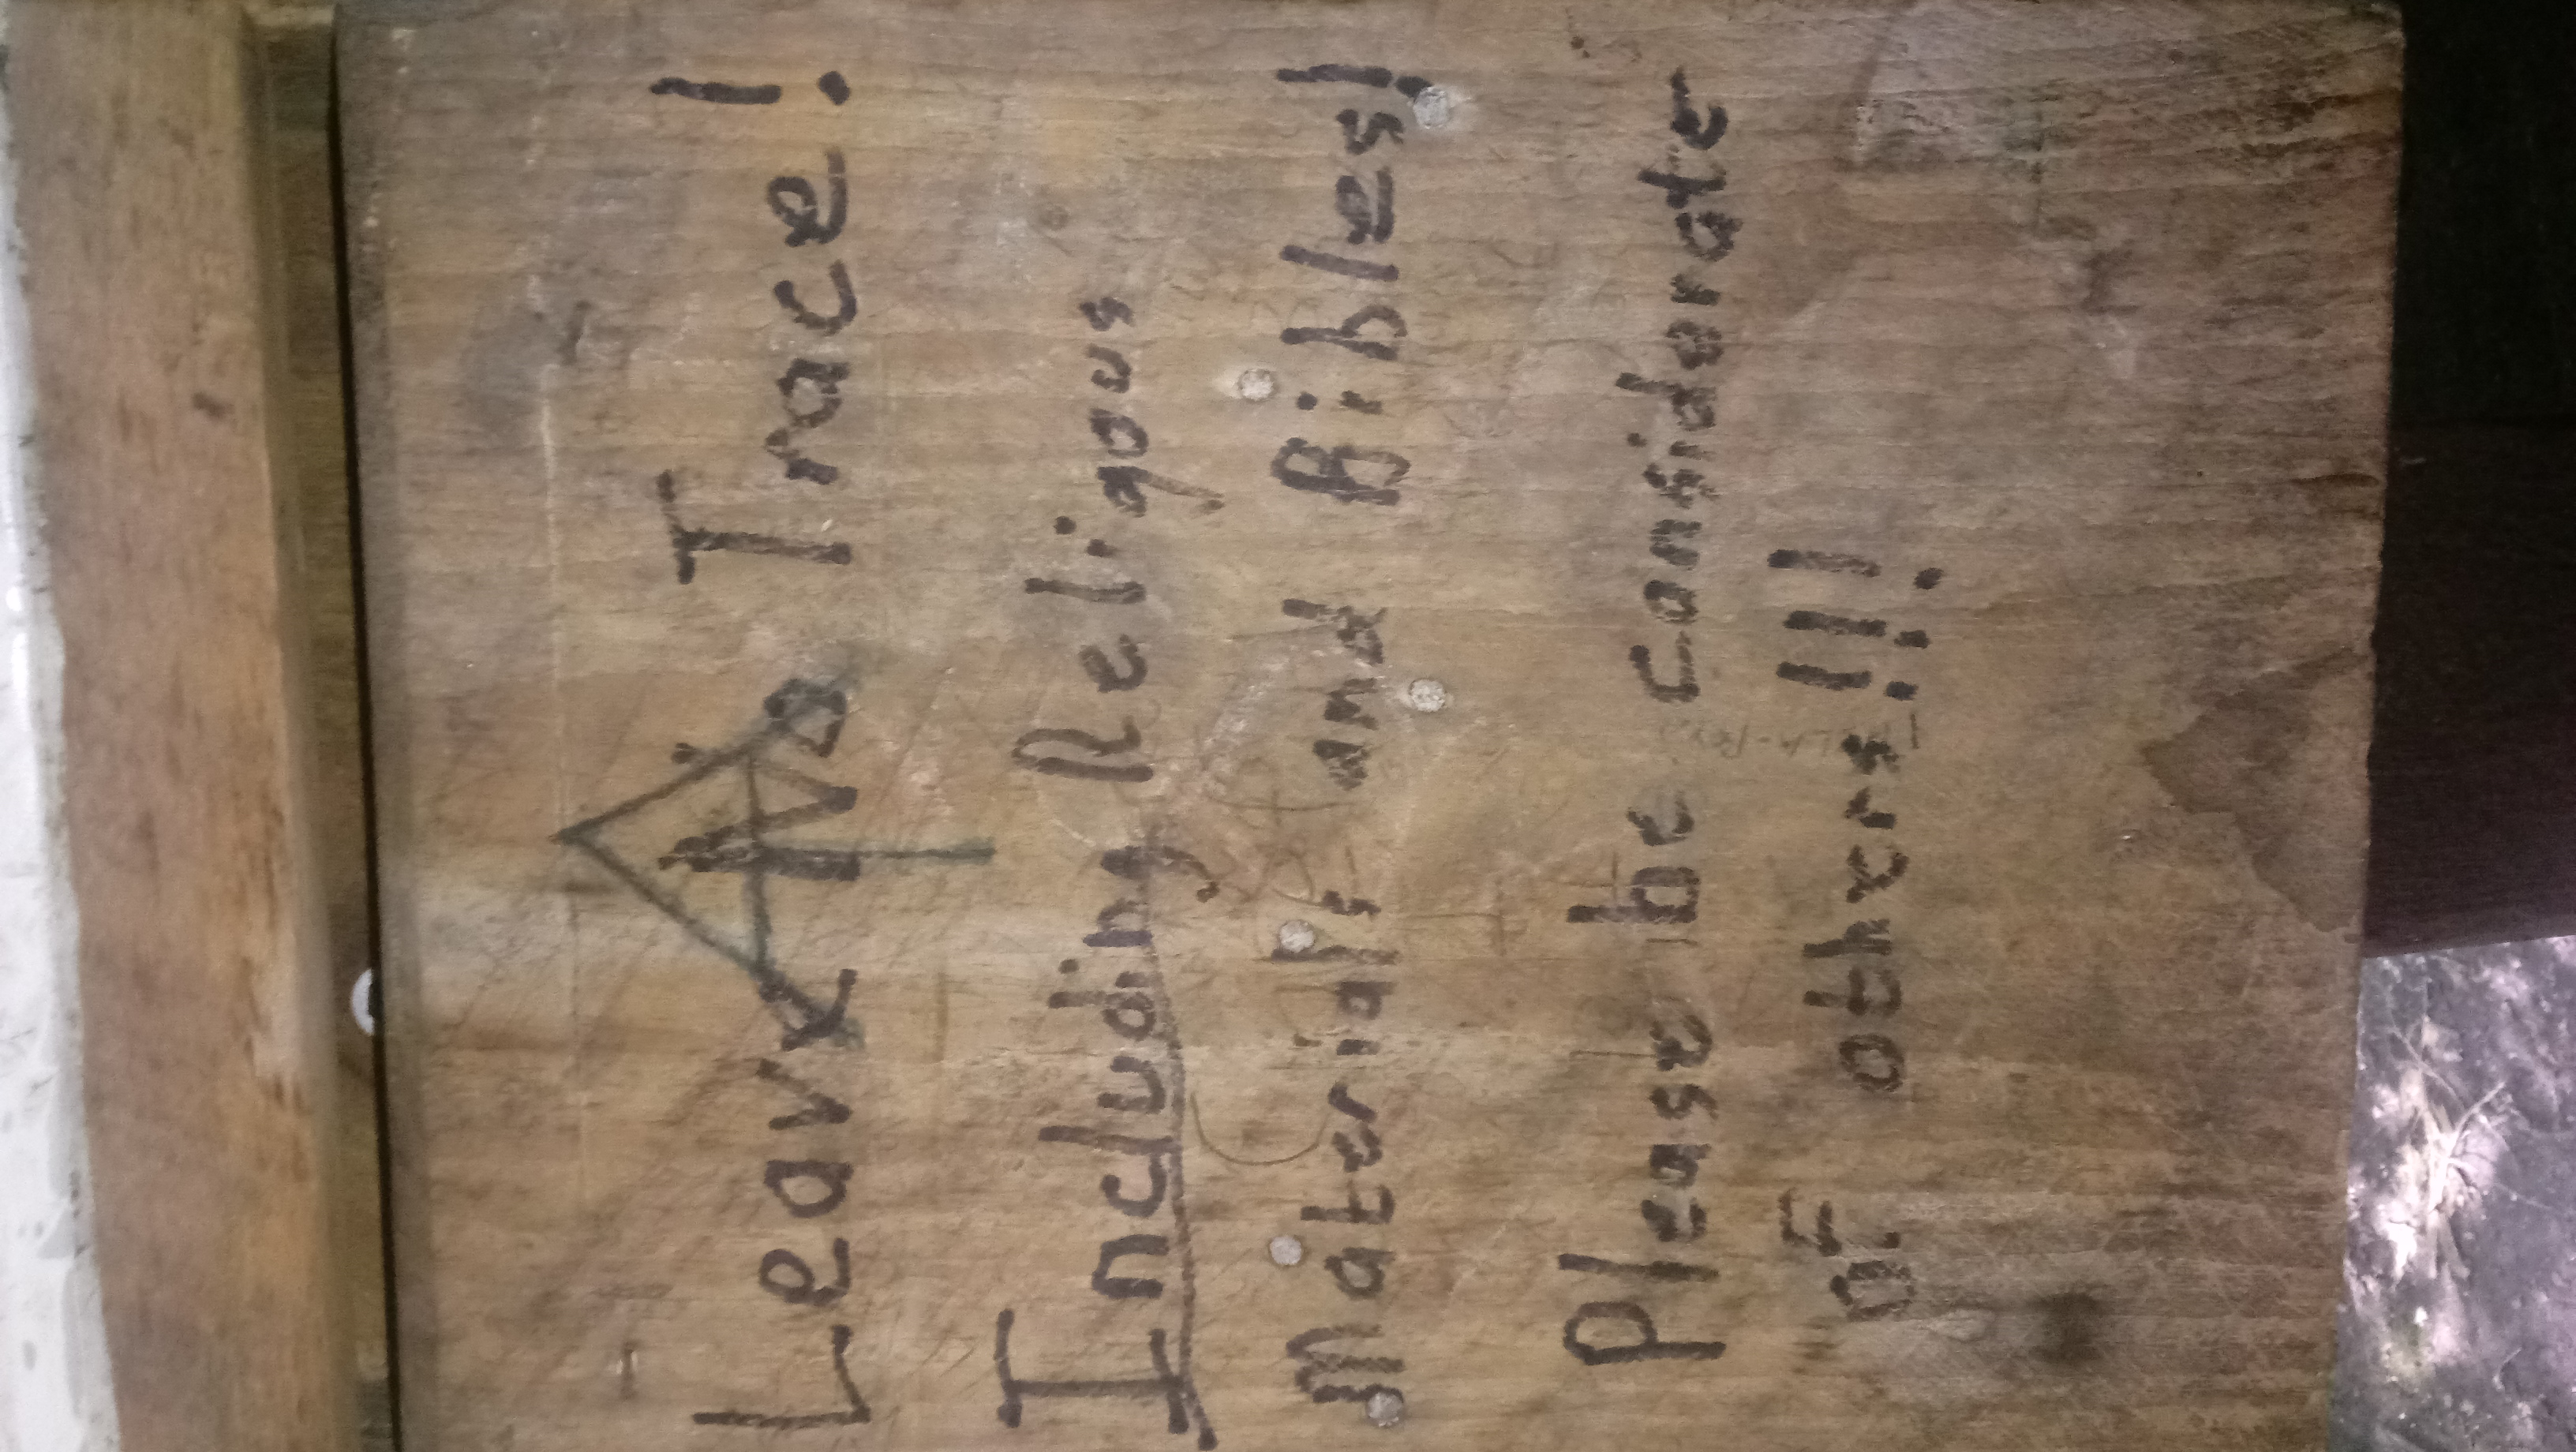 Leave No Trace!
Including Religous
Materials and Bibles!
Please be considerate
of others!!!